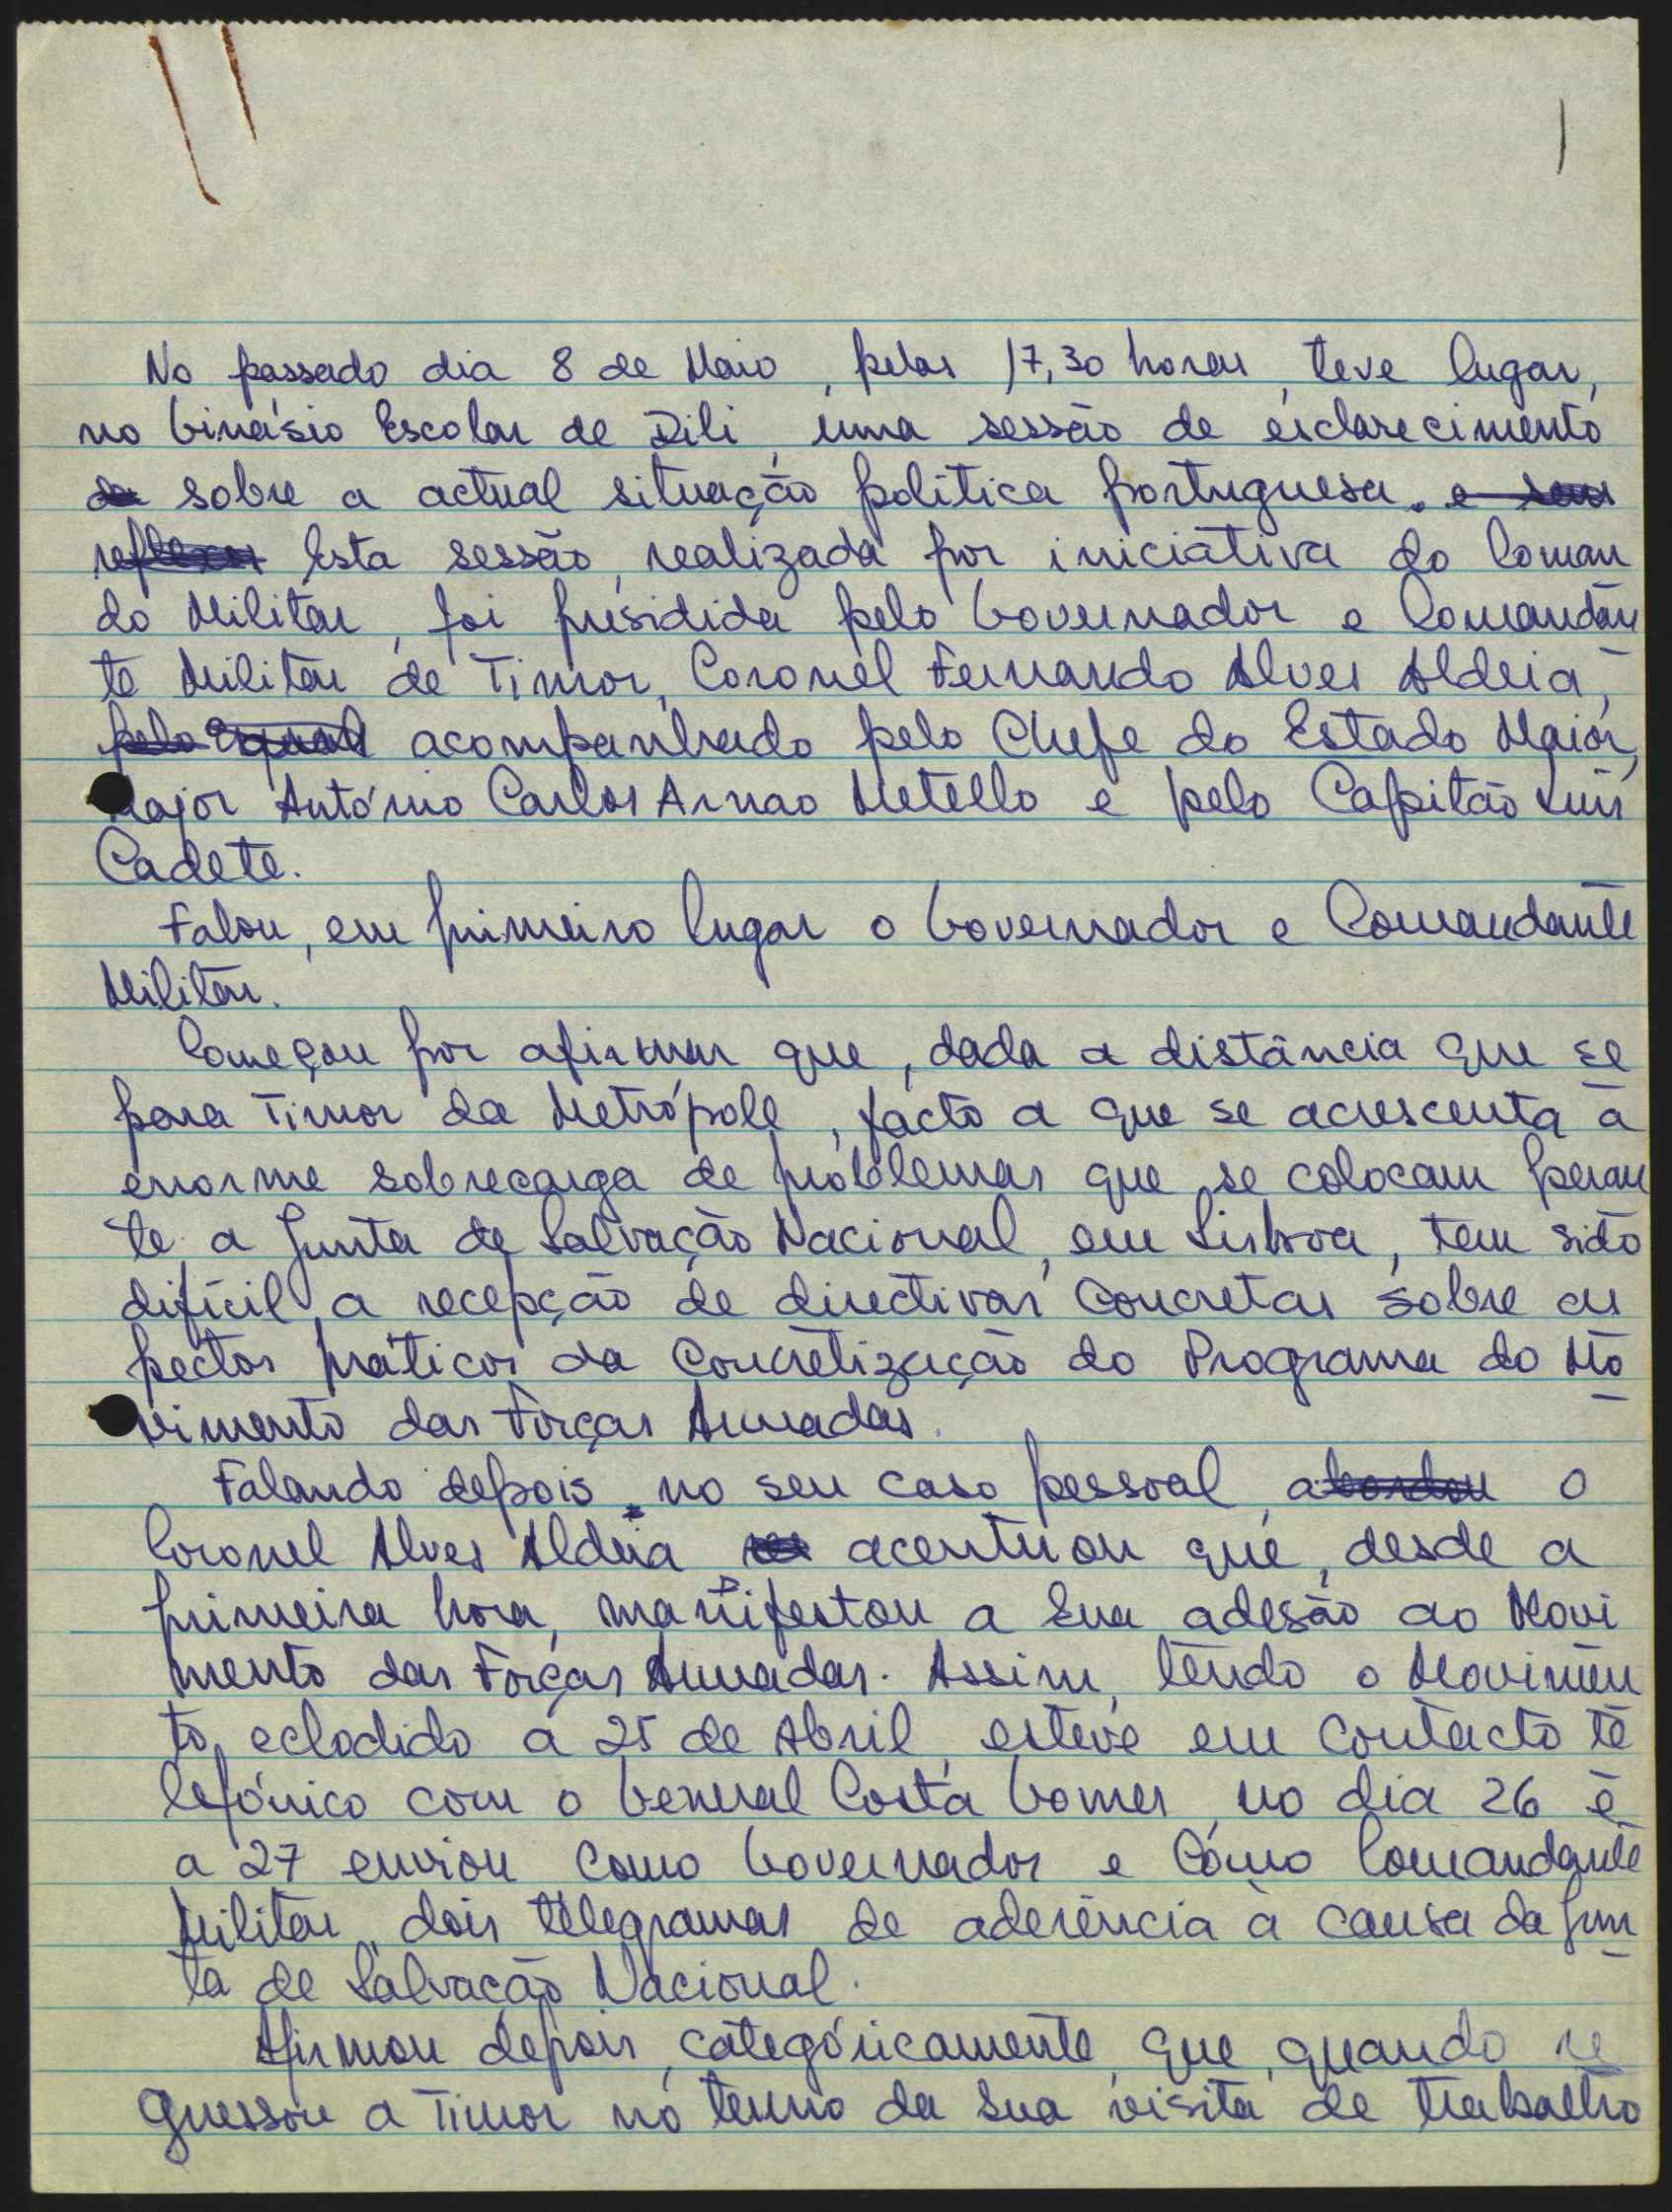 1
No passado dia 8 de Maio, pelas 17,30 horas, teve lugar,
no Ginásio Escolar de Dili, uma sessão de esclarecimento
sobre a actual situação política portuguesa. e seus
reflexos Esta sessão, realizada por iniciativa do Coman
do Militar, foi presidida pelo Governador e Comandan
te Militar de Timor, Coronel Fernando Alves Aldeia,
pelo qual acompanhado pelo Chefe do Estado Maior,
Major António Carlos Arnao Metello e pelo Capitão Luís
Cadete.
Falou, em primeiro lugar o Governador e Comandante
Militar.
Começou por afirmar que, dada a distância que se
para Timor da Metrópole, facto a que se acrescenta a
enorme sobrecarga de problemas que se colocam peran
te a Junta de Salvação Nacional, em Lisboa, tem sido
difícil a recepção de directivas concretas sobre as
pectos práticos da concretização do Programa do Mo
vimento das Forças Armadas.
Falando depois no seu caso pessoal, abordou o
Coronel Alves Aldeia acentuou que, desde a
primeira hora, manifestou a sua adesão ao Movi
mento das Forças Armadas. Assim, tendo o Movimen
to eclodido a 25 de Abril, esteve em contacto te
lefónico com o General Costa Gomes no dia 26 e
a 27 enviou como Governador e como Comandante
Militar, dois telegramas de aderência à causa da Jun
ta de Salvação Nacional.
Afirmou depois, categóricamente, que, quando re
gressou a Timor no termo da sua visita de trabalho